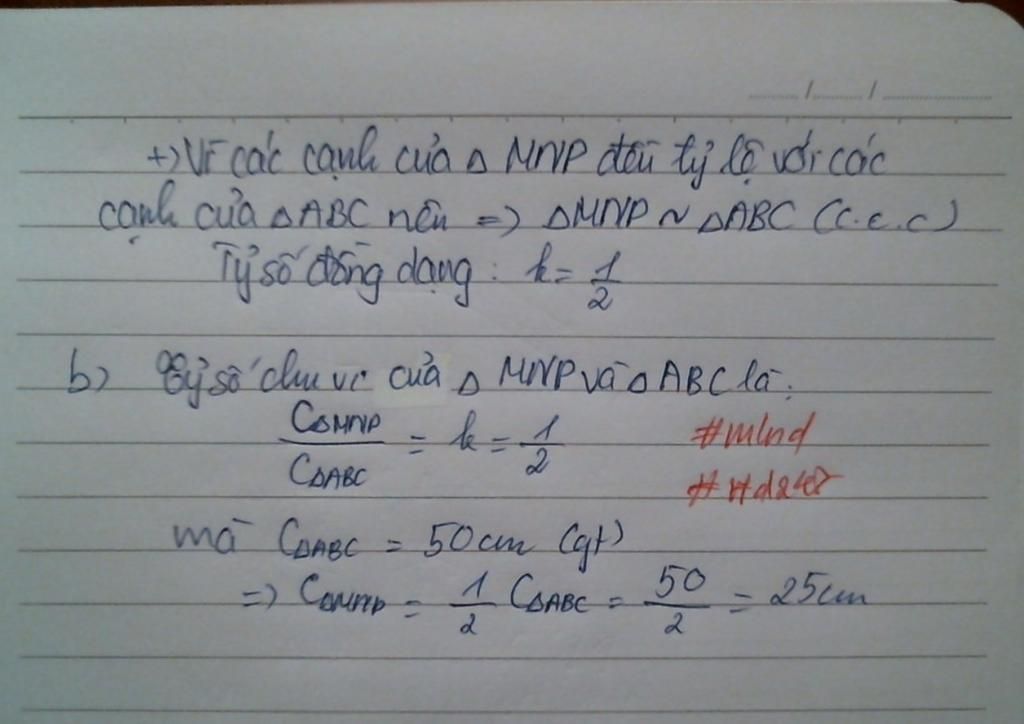 +) Vì các cạnh của Δ MNP đều tỷ lệ với các
cạnh của Δ ABC nên => Δ MNP ~ Δ ABC (c.c.c)
Tỷ số đồng dạng : k = 1/2
b) Tỷ số chu vi của Δ MNP và Δ ABC là:
CΔMNP/CΔABC = k = 1/2
#mlnd
mà CΔABC = 50cm (gt)
=> CΔMNP = 1/2 CΔABC = 50/2 = 25cm